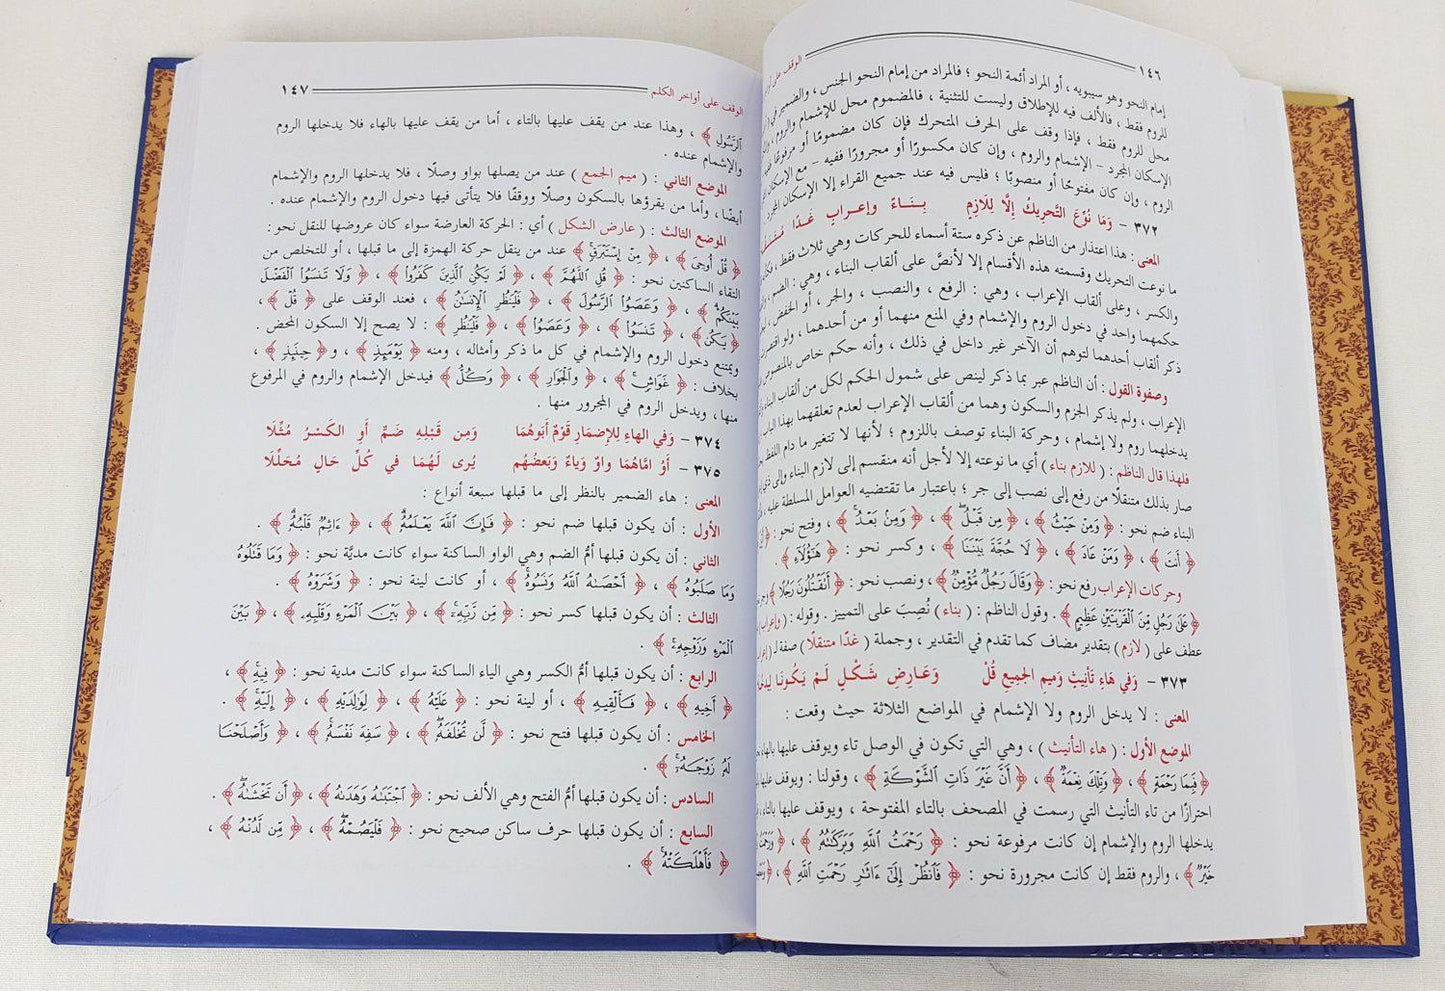 ١٤٦ الوقف على
إمام النحو وهو سيبويه ، أو المراد أئمة النحو ؛ فالمراد من إمام النحو الجنس ، والضمير في
للروم فقط ، فالألف فيه للإطلاق وليست للتثنية ، فالمضموم محل للإشمام والروم ،
محل للروم فقط ، فإذا وقف على الحرف المتحرك فإن كان مضمومًا أو مرفوعًا
الإسكان المجرد – الإشمام والروم ، وإن كان مكسورًا أو مجرورًا ففيه – مع الإسكان
الروم ، وإن كان مفتوحًا أو منصوبًا ؛ فليس فيه عند جميع القراء إلا الإسكان
٣٧٢ – وَمَا نُوِّعَ التَّحْرِيكُ إِلَّا لِلَازِمٍ بِنَاءً وإعرابٍ غَدَا
المعنى : هذا اعتذار من الناظم عن ذكره ستة أسماء للحركات وهي ثلاث فقط ،
ما نوعت التحريك وقسمته هذه الأقسام إلا لأنصَّ على ألقاب البناء ، وهي : الضم ،
والكسر ، وعلى ألقاب الإعراب ، وهي : الرفع ، والنصب ، والجر ، أو الخفض ،
حكمهما واحد في دخول الروم والإشمام وفي المنع منهما أو من أحدهما ، ولو
ذكر ألقاب أحدهما لتوهم أن الآخر غير داخل في ذلك ، وأنه حكم خاص
وصفوة القول : أن الناظم عبر بما ذكر لينص على شمول الحكم لكل من ألقاب
الإعراب ، ولم يذكر الجزم والسكون وهما من ألقاب الإعراب لعدم تعلقهما بهذا
يدخلهما روم ولا إشمام ، وحركة البناء توصف باللزوم ؛ لأنها لا تتغير ما دام اللفظ
فلهذا قال الناظم : ( للازم بناء ) أي ما نوعته إلا لأجل أنه منقسم إلى لازم البناء وإلى
صار بذلك متنقلًا من رفع إلى نصب إلى جر ؛ باعتبار ما تقتضيه العوامل المسلطة عليه ،
البناء ضم نحو : ﴿ وَمِنْ حَيْثُ ﴾ ، ﴿ مِن قَبْلُ ﴾ ، ﴿ وَمِنْ بَعْدُ ﴾ ، وفتح نحو :
﴿ أَنتَ ﴾ ، ﴿ وَمَنْ عَادَ ﴾ ، ﴿ لَا حُجَّةَ بَيْنَنَا ﴾ ، وكسر نحو : ﴿ هَٰٓؤُلَآءِ ﴾ .
وحركات الإعراب رفع نحو : ﴿ وَقَالَ رَجُلٌ مُّؤْمِنٌ ﴾ ، ونصب نحو : ﴿ أَتَقْتُلُونَ رَجُلًا ﴾
﴿ عَلَىٰ رَجُلٍ مِّنَ ٱلْقَرْيَتَيْنِ عَظِيمٍ ﴾ . وقول الناظم : ( بناء ) نُصِبَ على التمييز . وقوله :
عطف على ( لازم ) بتقدير مضاف كما تقدم في التقدير ، وجملة ( غدًا متنقلًا ) صفة لـ
٣٧٣ – وَفي هَاءِ تَأْنِيثٍ وَمِيمِ الجَمِيعِ قُلْ وَعَارِضِ شَكْلٍ لَمْ يَكُونَا
المعنى : لا يدخل الروم ولا الإشمام في المواضع الثلاثة حيث وقعت :
الموضع الأول : ( هاء التأنيث ) ، وهي التي تكون في الوصل تاء ويوقف عليها
﴿ فَبِمَا رَحْمَةٍ ﴾ ، ﴿ وَتِلْكَ نِعْمَةٌ ﴾ ، ﴿ أَنَّ غَيْرَ ذَاتِ ٱلشَّوْكَةِ ﴾ ، وقولنا : ويوقف عليها
احترازًا من تاء التأنيث التي رسمت في المصحف بالتاء المفتوحة ، ويوقف عليها بالتاء ،
يدخلها الروم والإشمام إن كانت مرفوعة نحو : ﴿ رَحْمَتُ ٱللَّهِ وَبَرَكَٰتُهُۥ ﴾ ،
خَيْرٌ ﴾ ، والروم فقط إن كانت مجرورة نحو : ﴿ فَٱنظُرْ إِلَىٰٓ ءَاثَٰرِ رَحْمَتِ ٱللَّهِ ﴾ ،
الوقف على أواخر الكلم ١٤٧
ٱلرَّسُولِ ﴾ ، وهذا عند من يقف عليها بالتاء ، أما من يقف عليها بالهاء فلا يدخلها الروم
والإشمام عنده .
الموضع الثاني : ( ميم الجمع ) عند من يصلها بواو وصلًا ، فلا يدخلها الروم والإشمام
أيضًا ، وأما من يقرؤها بالسكون وصلًا ووقفًا فلا يتأتى فيها دخول الروم والإشمام عنده .
الموضع الثالث : ( عارض الشكل ) أي : الحركة العارضة سواء كان عروضها للنقل نحو :
﴿ قُلْ أُوحِىَ ﴾ ، ﴿ مِنْ إِسْتَبْرَقٍ ﴾ عند من ينقل حركة الهمزة إلى ما قبلها ، أو للتخلص من
التقاء الساكنين نحو : ﴿ قُلِ ٱللَّهُمَّ ﴾ ، ﴿ لَمْ يَكُنِ ٱلَّذِينَ كَفَرُوا۟ ﴾ ، ﴿ وَلَا تَنسَوُا۟ ٱلْفَضْلَ
بَيْنَكُمْ ﴾ ، ﴿ وَعَصَوُا۟ ٱلرَّسُولَ ﴾ ، ﴿ فَلْيَنظُرِ ٱلْإِنسَٰنُ ﴾ ، فعند الوقف على ﴿ قُلْ ﴾ ،
﴿ يَكُنِ ﴾ ، ﴿ تَنسَوُا۟ ﴾ ، ﴿ وَعَصَوُا۟ ﴾ ، ﴿ فَلْيَنظُرِ ﴾ : لا يصح إلا السكون المحض .
ويمتنع دخول الروم والإشمام في كل ما ذكر وأمثاله ، ومنه ﴿ يَوْمَئِذٍ ﴾ ، و﴿ حِينَئِذٍ ﴾ ،
بخلاف : ﴿ غَوَاشٍ ﴾ ، ﴿ والجَوَارِ ﴾ ، ﴿ وَكُلٌّ ﴾ فيدخل الإشمام والروم في المرفوع
منها ، ويدخل الروم في المجرور منها .
٣٧٤ – وَفي الهاءِ لِلإضمَارِ قَوْمٌ أَبَوهُمَا وَمِن قَبْلِهِ ضَمٌّ أَوِ الكَسْرُ مُثِّلَا
٣٧٥ – أَوُ امَّاهُمَا واوٌ وَيَاءٌ وَبَعضُهُم يُرى لَهُمَا في كُلِّ حَالٍ مُحَلِّلَا
المعنى : هاء الضمير بالنظر إلى ما قبلها سبعة أنواع :
الأول : أن يكون قبلها ضم نحو : ﴿ فَإِنَّ ٱللَّهَ يَعْلَمُهُۥ ﴾ ، ﴿ ءَاثِمٌ قَلْبُهُۥ ﴾ .
الثاني : أن يكون قبلها أمُّ الضم وهي الواو الساكنة سواء كانت مديَّة نحو : ﴿ وَمَا قَتَلُوهُ
وَمَا صَلَبُوهُ ﴾ ، ﴿ أَحْصَىٰهُ ٱللَّهُ وَنَسُوهُ ﴾ ، أو كانت لينة نحو : ﴿ وَشَرَوْهُ ﴾ .
الثالث : أن يكون قبلها كسر نحو : ﴿ مِّن رَّبِّهِۦ ﴾ ، ﴿ بَيْنَ ٱلْمَرْءِ وَقَلْبِهِۦ ﴾ ، ﴿ بَيْنَ
ٱلْمَرْءِ وَزَوْجِهِۦ ﴾ .
الرابع : أن يكون قبلها أمُّ الكسر وهي الياء الساكنة سواء كانت مدية نحو : ﴿ فِيهِ ﴾ ،
﴿ أَخِيهِ ﴾ ، ﴿ فَأَلْقِيهِ ﴾ ، أو لينة نحو : ﴿ عَلَيْهِ ﴾ ، ﴿ لِوَٰلِدَيْهِ ﴾ ، ﴿ إِلَيْهِ ﴾ .
الخامس : أن يكون قبلها فتح نحو : ﴿ لَّن تُخْلَفَهُۥ ﴾ ، ﴿ سَفِهَ نَفْسَهُۥ ﴾ ، ﴿ وَأَصْلَحْنَا
لَهُۥ زَوْجَهُۥٓ ﴾ .
السادس : أن يكون قبلها أمُّ الفتح وهي الألف نحو : ﴿ ٱجْتَبَىٰهُ وَهَدَىٰهُ ﴾ ، ﴿ أَن تَخْشَىٰهُ ﴾ .
السابع : أن يكون قبلها حرف ساكن صحيح نحو : ﴿ فَلْيَصُمْهُ ﴾ ، ﴿ مِّن لَّدُنْهُ ﴾ ،
﴿ فَأَهْلَكَتْهُ ﴾ .